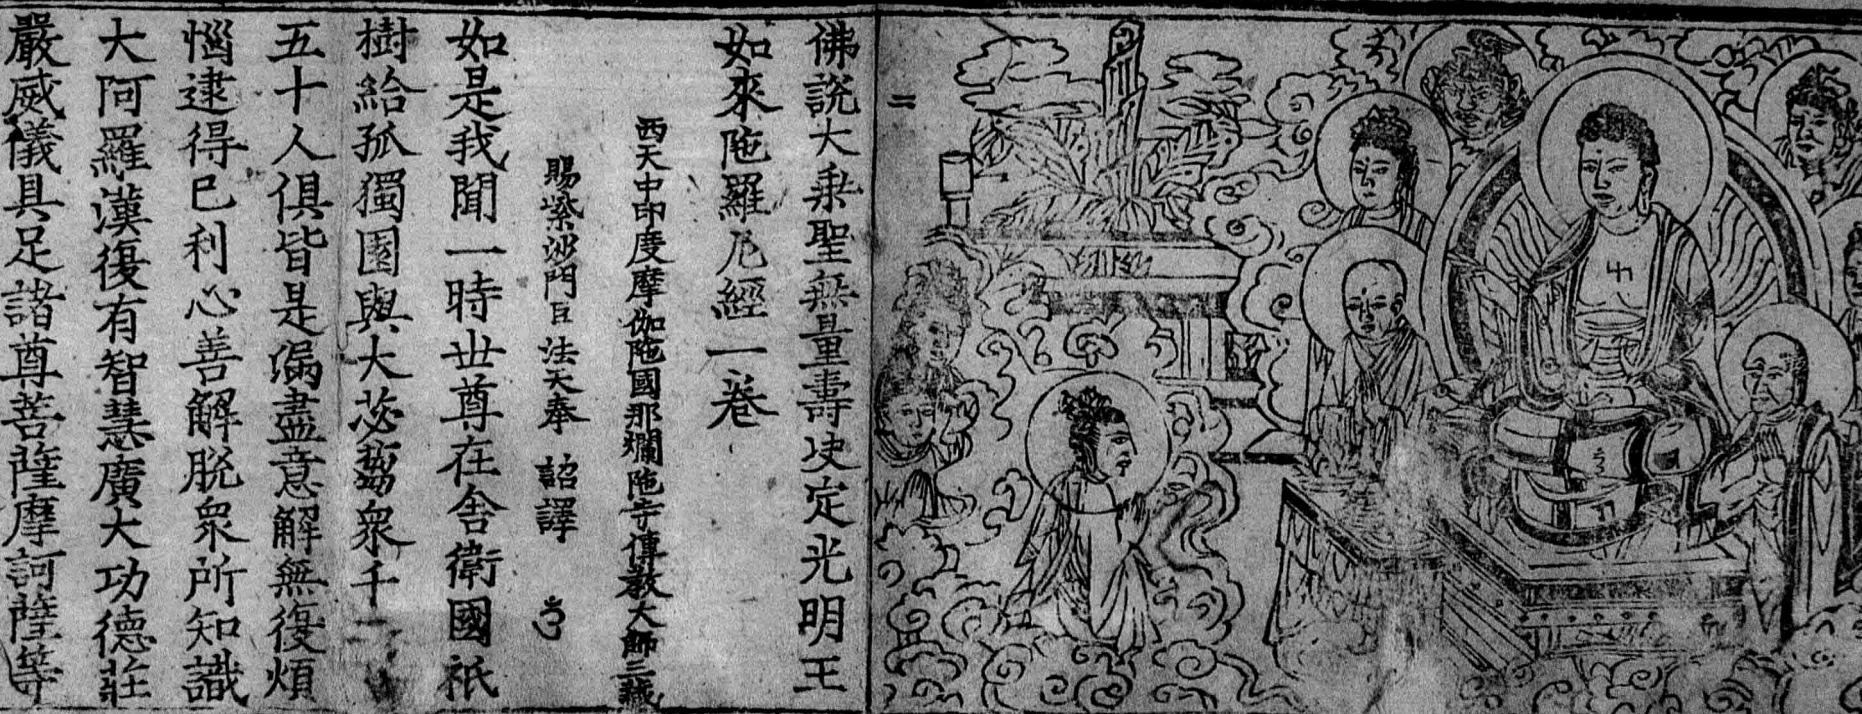 二
佛説大乘聖無量壽决定光明王
如來陁羅尼經一卷
西天中印度摩伽陁國那爛陁寺傳教大師三藏
賜紫沙門臣法天奉 詔譯
如是我聞一時世尊在舍衛國祇
樹給孤獨園與大苾蒭衆千二百
五十人俱皆是漏盡意解無復煩
惱逮得已利心善解脱衆所知識
大阿羅漢復有智慧廣大功德莊
嚴威儀具足諸尊菩薩摩訶薩等